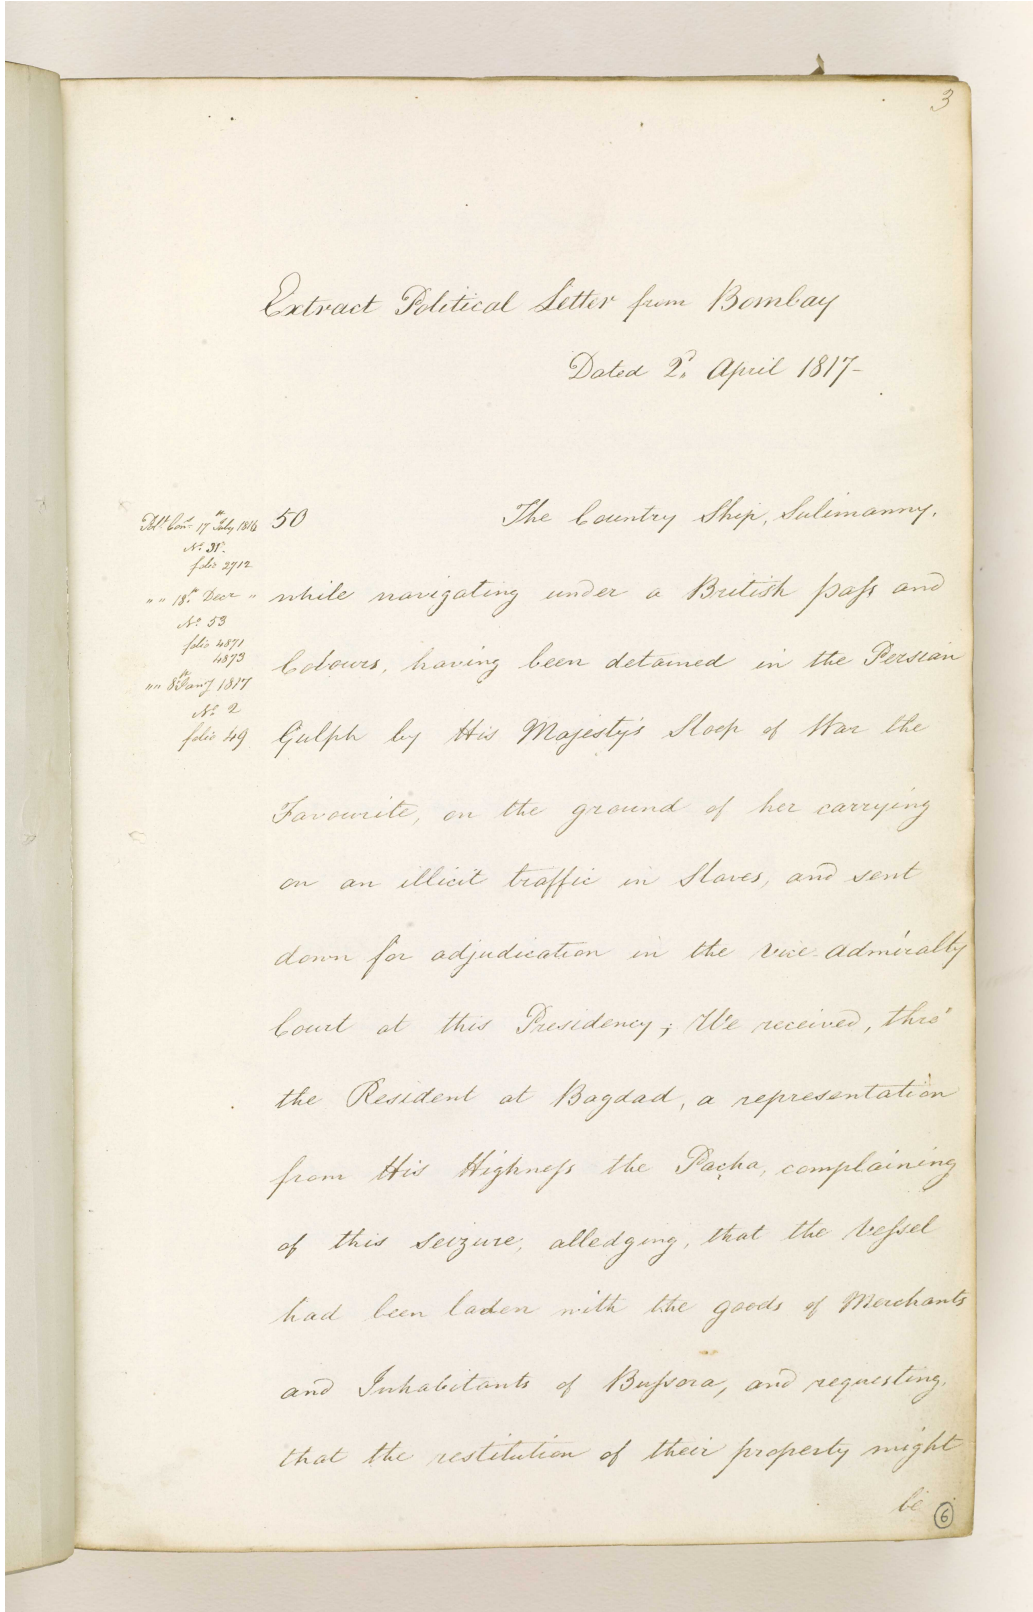 3
Extract Political Letter from Bombay
Dated 2d. April 1817-
Pol: Cons: 17th July 1816
No. 31.
folio 2712
" " 18th. Decr "
No. 53
folio 4871
4873
" " 8th Jany 1817
No. 2
folio 49
50 The Country Ship, Sulimanny,
while navigating under a British pass and
Colours, having been detained in the Persian
Gulph by His Majesty's Sloop of War the
Favourite, on the ground of her carrying
on an illicit traffic in Slaves, and sent
down for adjudication in the Vice Admiralty
Court at this Presidency; We received, thro'
the Resident at Bagdad, a representation
from His Highness the Pacha, complaining
of this seizure, alledging, that the Vessel
had been laden with the goods of Merchants
and Inhabitants of Bussora, and requesting,
that the restitution of their property might
be
6